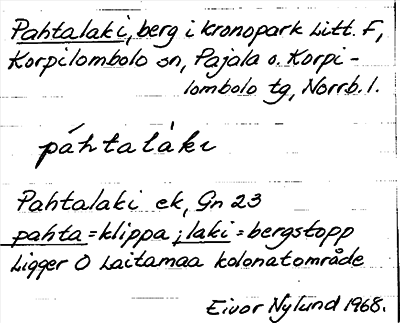 Pahtalaki, berg i kronopark Litt. F,
Korpilombolo sn, Pajala o. Korpi-
lombolo tg, Norrb. l.
páhtalàki
Pahtalaki ek, Gn 23
pahta = klippa; laki = bergstopp
Ligger O Laitamaa kolonatområde
Eivor Nylund 1968.